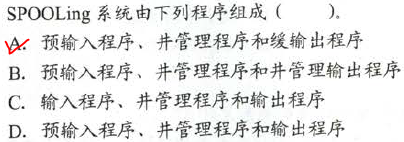 SPOOLing 系统由下列程序组成（　　）。
A. 预输入程序、井管理程序和缓输出程序
B. 预输入程序、井管理程序和井管理输出程序
C. 输入程序、井管理程序和输出程序
D. 预输入程序、井管理程序和输出程序